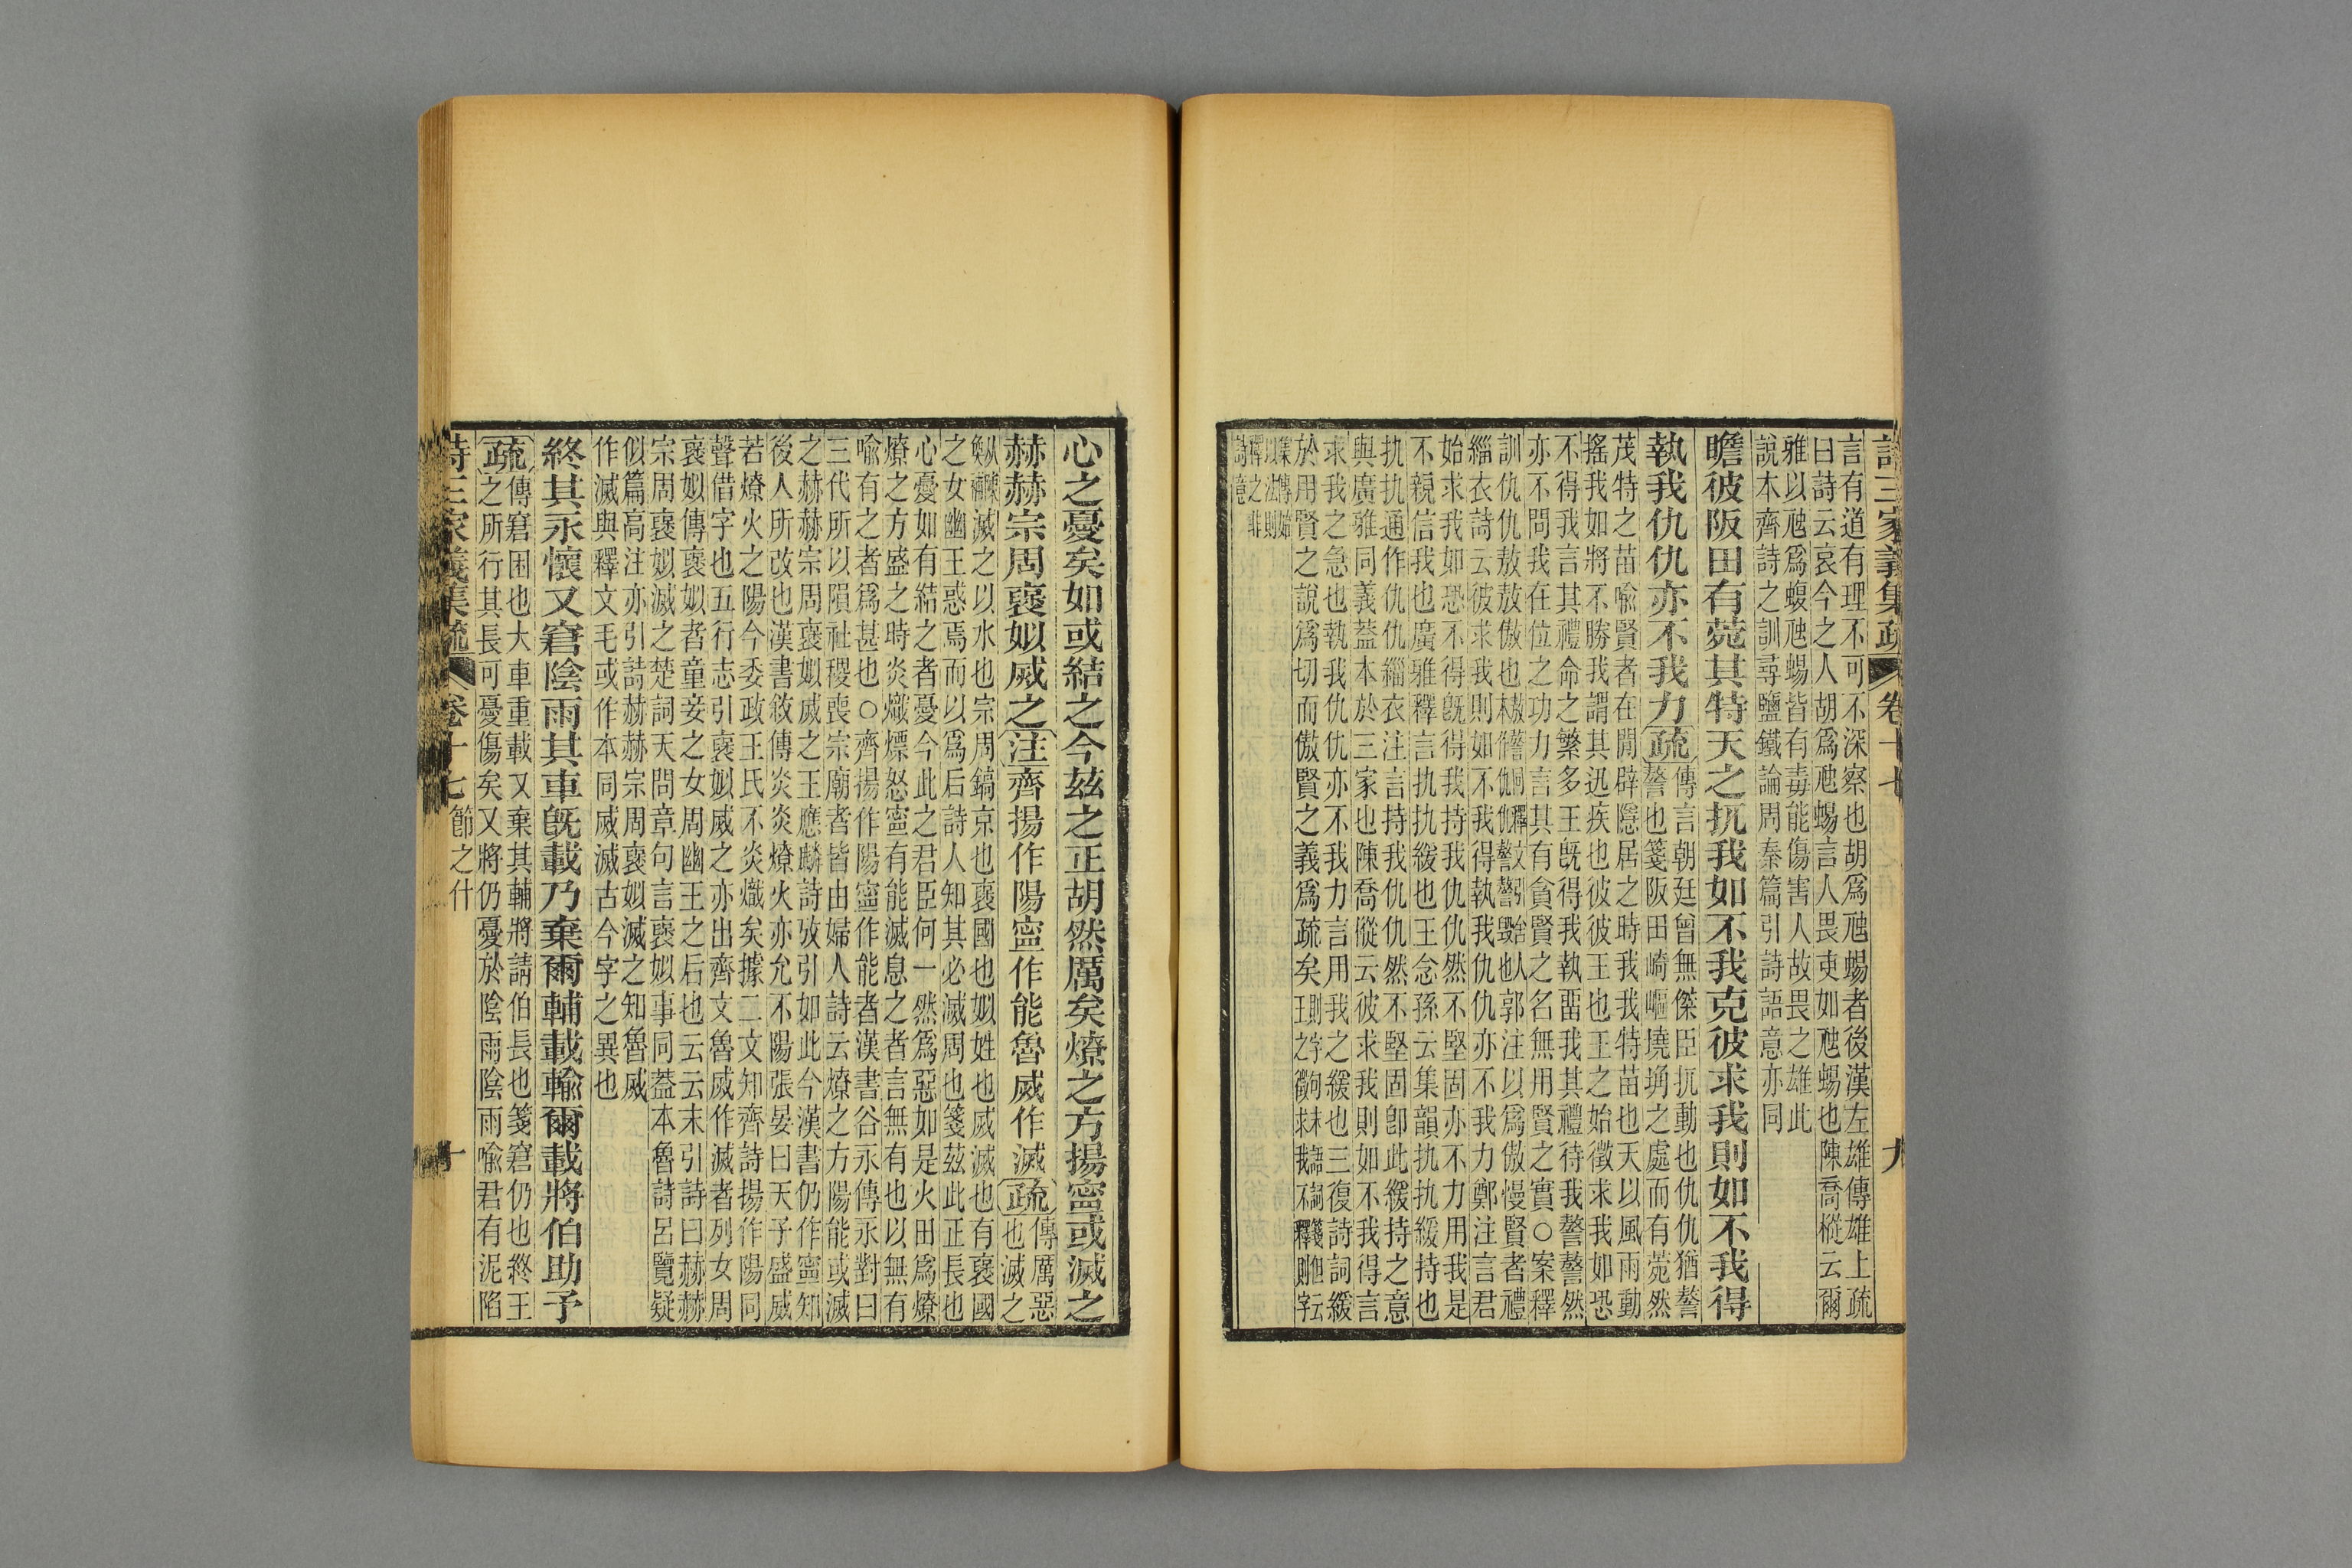 詩三家義集疏 卷十七 九
言有道有理不可不深察也胡爲虺蜴者後漢左雄傳雄上疏
曰詩云哀今之人胡爲虺蜴言人畏吏如虺蜴也陳喬樅云爾
雅以虺爲蝮虺蜴皆有毒能傷害人故畏之雄此
說本齊詩之訓尋鹽鐵論周秦篇引詩語意亦同
瞻彼阪田有菀其特天之扤我如不我克彼求我則如不我得
執我仇仇亦不我力疏
傳言朝廷曾無傑臣扤動也仇仇猶謷
謷也箋阪田崎嶇墝埆之處而有菀然
茂特之苗喻賢者在閒辟隱居之時我我特苗也天以風雨動
搖我如將不勝我謂其迅疾也彼彼王也王之始徵求我如恐
不得我言其禮命之繁多王旣得我執畱我其禮待我謷謷然
亦不問我在位之功力言其有貪賢之名無用賢之實○案釋
訓仇仇敖敖傲也
郭注以爲傲慢賢者禮
緇衣詩云彼求我則如不我得執我仇仇亦不我力鄭注言君
始求我如恐不得旣得我持我仇仇然不堅固亦不力用我是
不親信我也廣雅釋言扏扏緩也王念孫云集韻扏扏緩持也
扏扏通作仇仇緇衣注言持我仇仇然不堅固卽此緩持之意
與廣雅同義葢本於三家也陳喬樅云彼求我則如不我得言
求我之急也執我仇仇亦不我力言用我之緩也三復詩詞緩
於用賢之說爲切而傲賢之義爲疏矣
心之憂矣如或結之今玆之正胡然厲矣燎之方揚寧或滅之
赫赫宗周襃姒烕之注齊揚作陽寧作能魯烕作滅疏
傳厲惡
也滅之
以水也宗周鎬京也襃國也姒姓也烕滅也有襃國
之女幽王惑焉而以爲后詩人知其必滅周也箋玆此正長也
心憂如有結之者憂今此之君臣何一然爲惡如是火田爲燎
燎之方盛之時炎熾熛怒寧有能滅息之者言無有也以無有
喻有之者爲甚也○齊揚作陽寧作能者漢書谷永傳永對曰
三代所以隕社稷喪宗廟者皆由婦人詩云燎之方陽能或滅
之赫赫宗周襃姒烕之王應麟詩攷引如此今漢書仍作寧知
後人所改也漢書敘傳炎炎燎火亦允不陽張晏曰天子盛威
若燎火之陽今委政王氏不炎熾矣據二文知齊詩揚作陽同
聲借字也五行志引襃姒烕之亦出齊文魯烕作滅者列女周
襃姒傳襃姒者童妾之女周幽王之后也云云末引詩曰赫赫
宗周襃姒滅之楚詞天問章句言襃姒事同葢本魯詩呂覽疑
似篇高注亦引詩赫赫宗周襃姒滅之知魯烕
作滅與釋文毛或作本同烕滅古今字之異也
終其永懷又窘陰雨其車旣載乃棄爾輔載輸爾載將伯助予
疏
傳窘困也大車重載又棄其輔將請伯長也箋窘仍也終王
之所行其長可憂傷矣又將仍憂於陰雨陰雨喻君有泥陷
詩三家義集疏 卷十七 節之什 十